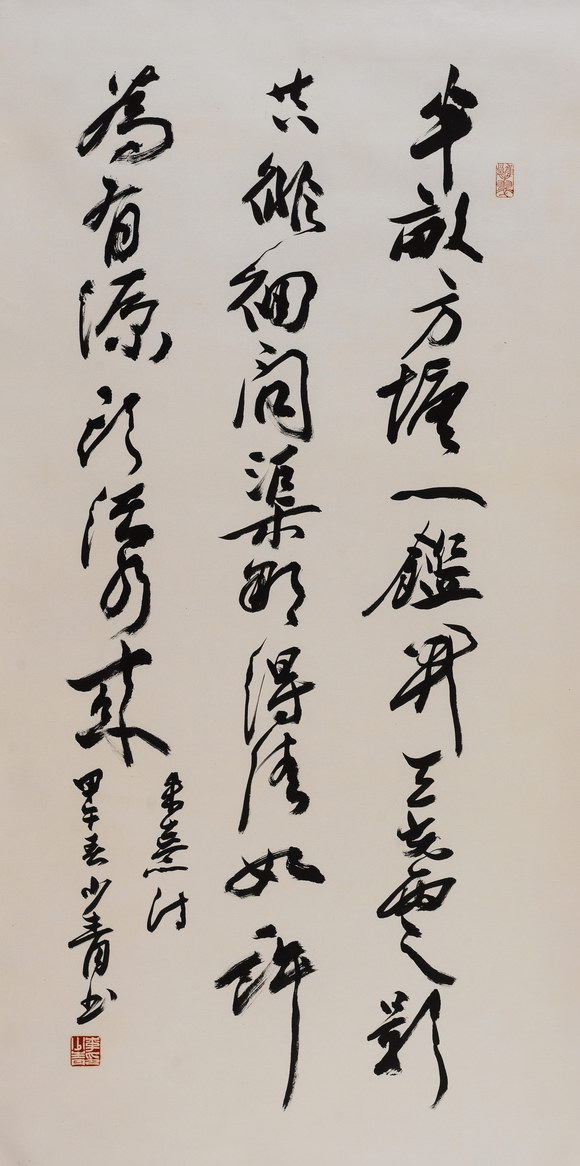 半畝方塘一鑑開天光雲影
共徘徊問渠那得清如許
為有源頭活水來
朱熹詩
甲午春少青書